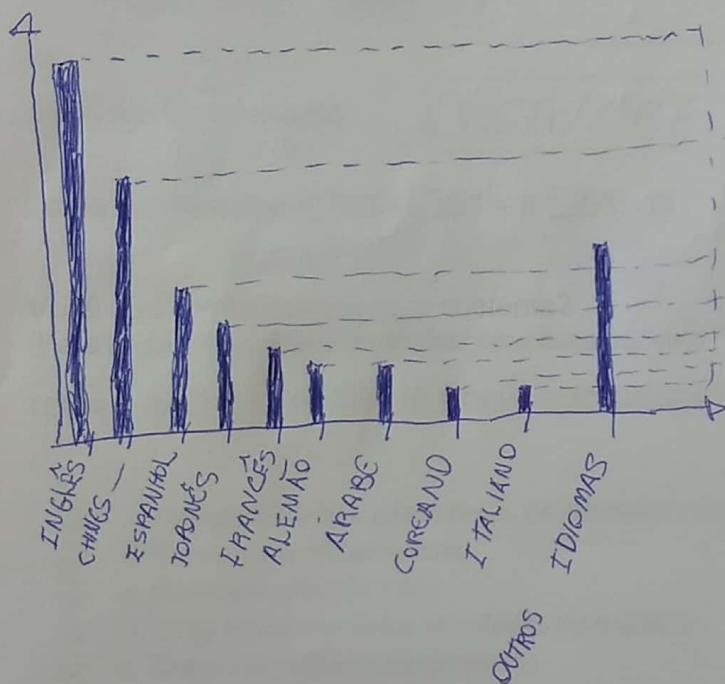 INGLÊS
CHINGS
ESPANHOL
JOPONÊS
FRANCÊS
ALEMÃO
ÁRABE
COREANO
ITALIANO
OUTROS IDIOMAS